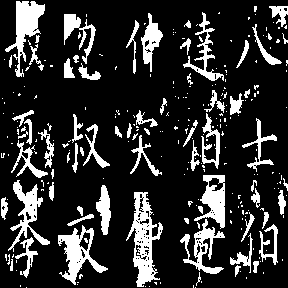 八士伯
達伯适
仲突仲
忽叔夜
叔夏季